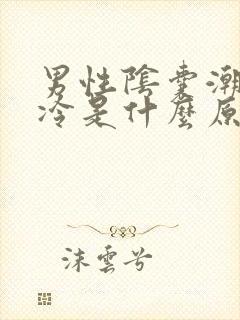 男性陰囊潮
冷是什麼原
沫雲兮